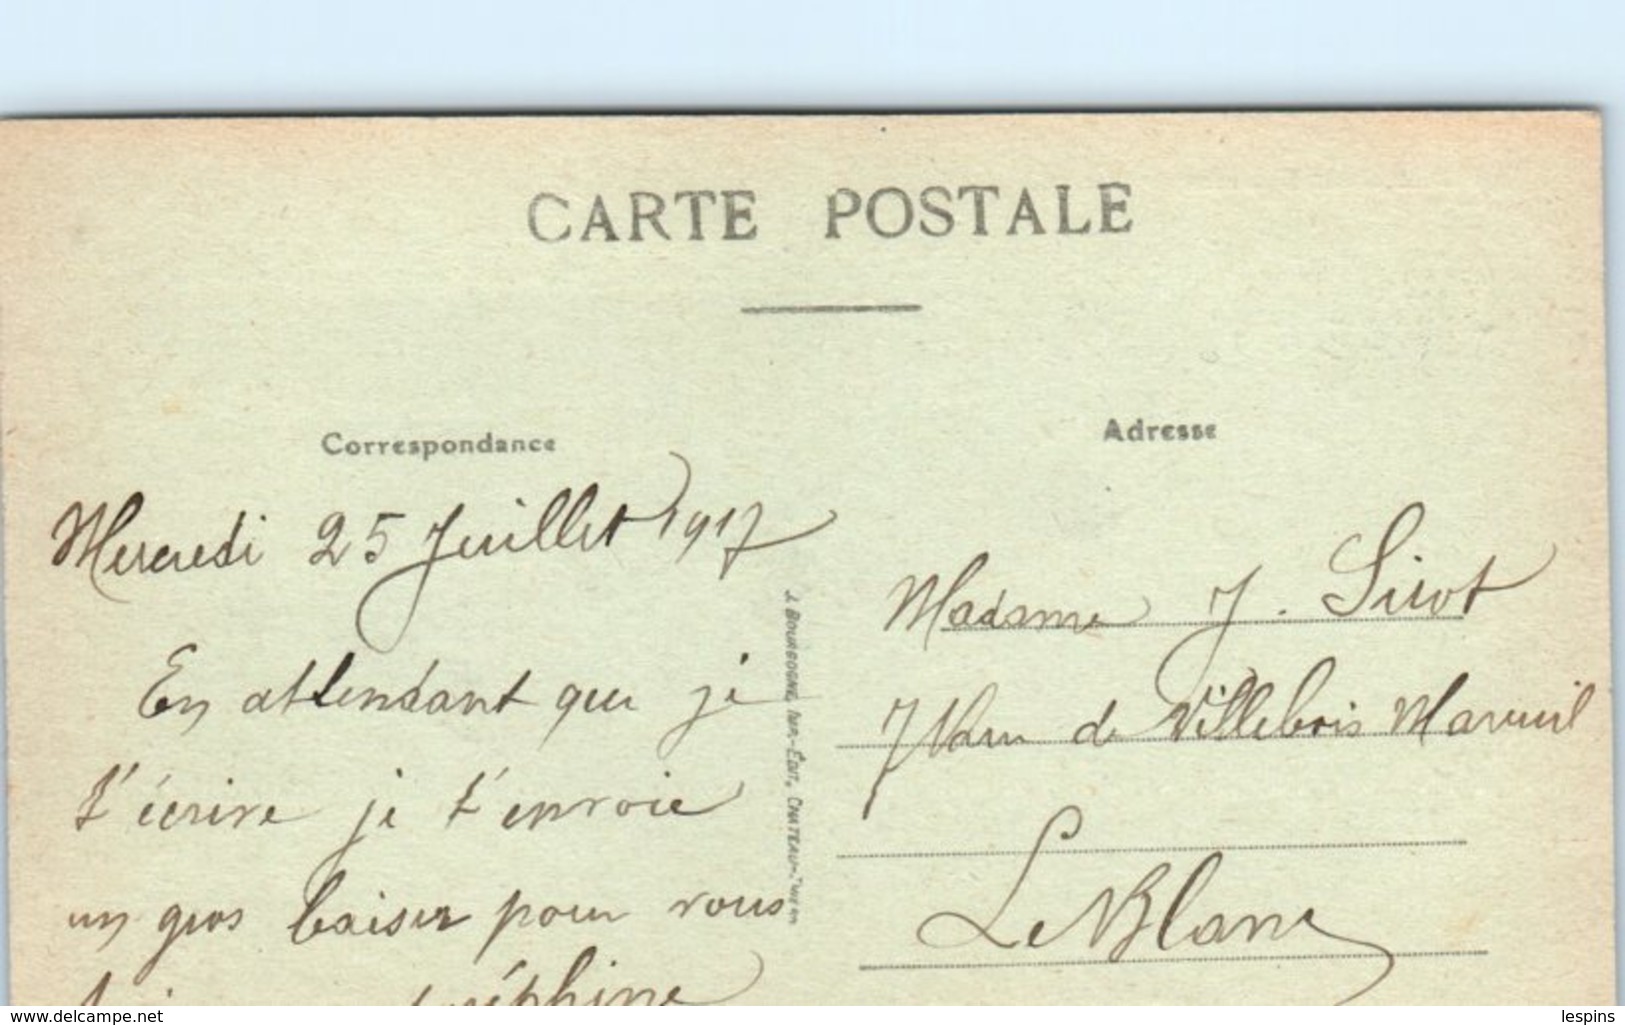 CARTE POSTALE
Correspondance
Mercredi 25 Juillet 1917
En attendant que je
t'écrire je t'envoie
un gros baiser pour vous
Joséphine
J. BOURGOGNE, IMP.-ÉDIT., CHATEAU-
Adresse
Madame J. Sirot
7 Rue de Villebois Mareuil
Le Blanc
www.delcampe.net
lespins